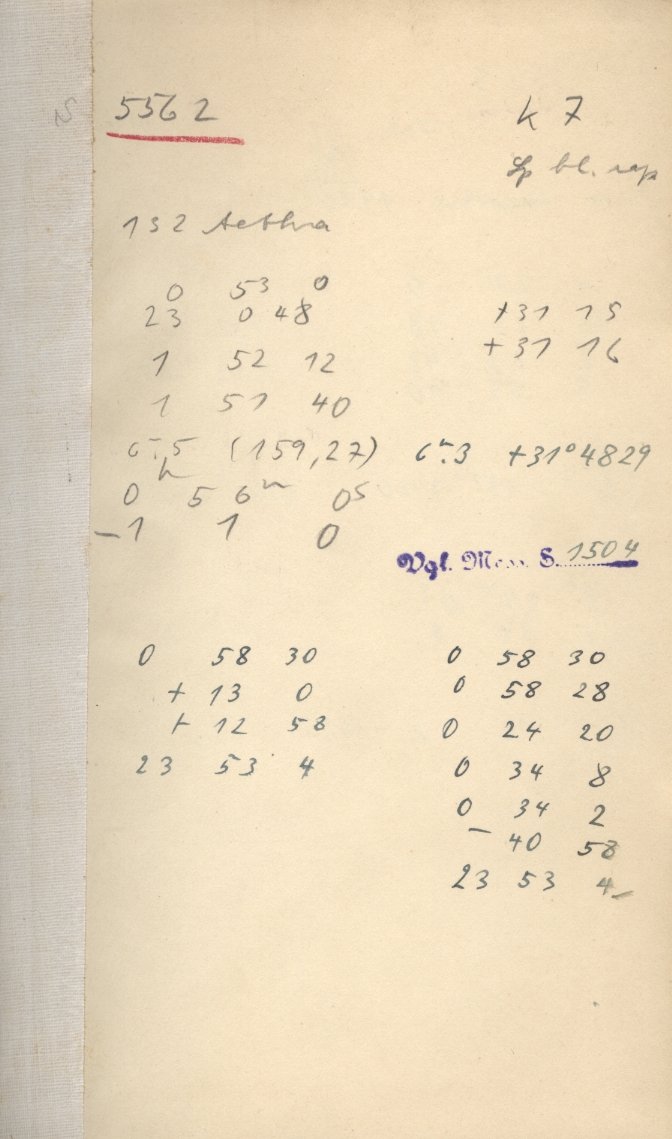 5562 K 7
bl.
132 Aethra
0 53 0
23 0 48 +31 15
1 52 12 +31 16
1 51 40
6m,5 (159,27) 6m.3 +31°4829
0h 56m 0s
-1 1 0
Vgl. Mess. S. 1504
0 58 30 0 58 30
+ 13 0 0 58 28
+ 12 58 0 24 20
23 53 4 0 34 8
0 34 2
- 40 58
23 53 4